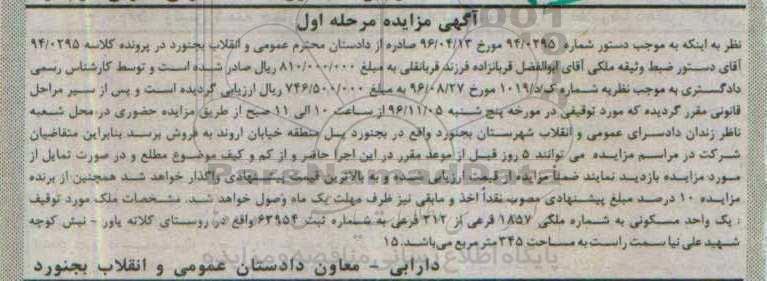 آگهی مزایده مرحله اول
نظر به اینکه به موجب دستور شماره ۹۴/۰۲۹۵ مورخ ۹۶/۰۴/۱۳ صادره از دادستان محترم عمومی و انقلاب بجنورد در پرونده کلاسه ۹۴/۰۲۹۵
آقای دستور ضبط وثیقه ملکی آقای ابوالفضل قربانزاده فرزند قربانقلی به مبلغ ۸۱۰/۰۰۰/۰۰۰ ریال صادر شده است و توسط کارشناس رسمی
دادگستری به موجب نظریه شماره ک/د/۱۰۱۹ مورخ ۹۶/۰۸/۲۷ به مبلغ ۷۴۶/۵۰۰/۰۰۰ ریال ارزیابی گردیده است و پس از سیر مراحل
قانونی مقرر گردیده که مورد توقیفی در مورخه پنج شنبه ۹۶/۱۱/۰۵ از ساعت ۱۰ الی ۱۱ صبح از طریق مزایده حضوری در محل شعبه
ناظر زندان دادسرای عمومی و انقلاب شهرستان بجنورد واقع در بجنورد پل منطقه خیابان اروند به فروش برسد بنابراین متقاضیان
شرکت در مراسم مزایده می توانند ۵ روز قبل از موعد مقرر در این اجرا حاضر و از کم و کیف موضوع مطلع و در صورت تمایل از
مورد مزایده بازدید نمایند ضمناً مزایده از قیمت ارزیابی شده و به بالاترین قیمت پیشنهادی واگذار خواهد شد همچنین از برنده
مزایده ۱۰ درصد مبلغ پیشنهادی مصوب نقداً اخذ و مابقی نیز ظرف مهلت یک ماه وصول خواهد شد. مشخصات ملک مورد توقیف
: یک واحد مسکونی به شماره ملکی ۱۸۵۷ فرعی از ۳۱۲ فرعی به شماره ثبت ۶۳۹۵۴ واقع در روستای کلاته یاور - نبش کوچه
شهید علی نیا سمت راست به مساحت ۳۴۵ متر مربع می‌باشد. ۱۵
دارابی - معاون دادستان عمومی و انقلاب بجنورد
ParsNamadData
پایگاه اطلاع رسانی مناقصه و مزایده